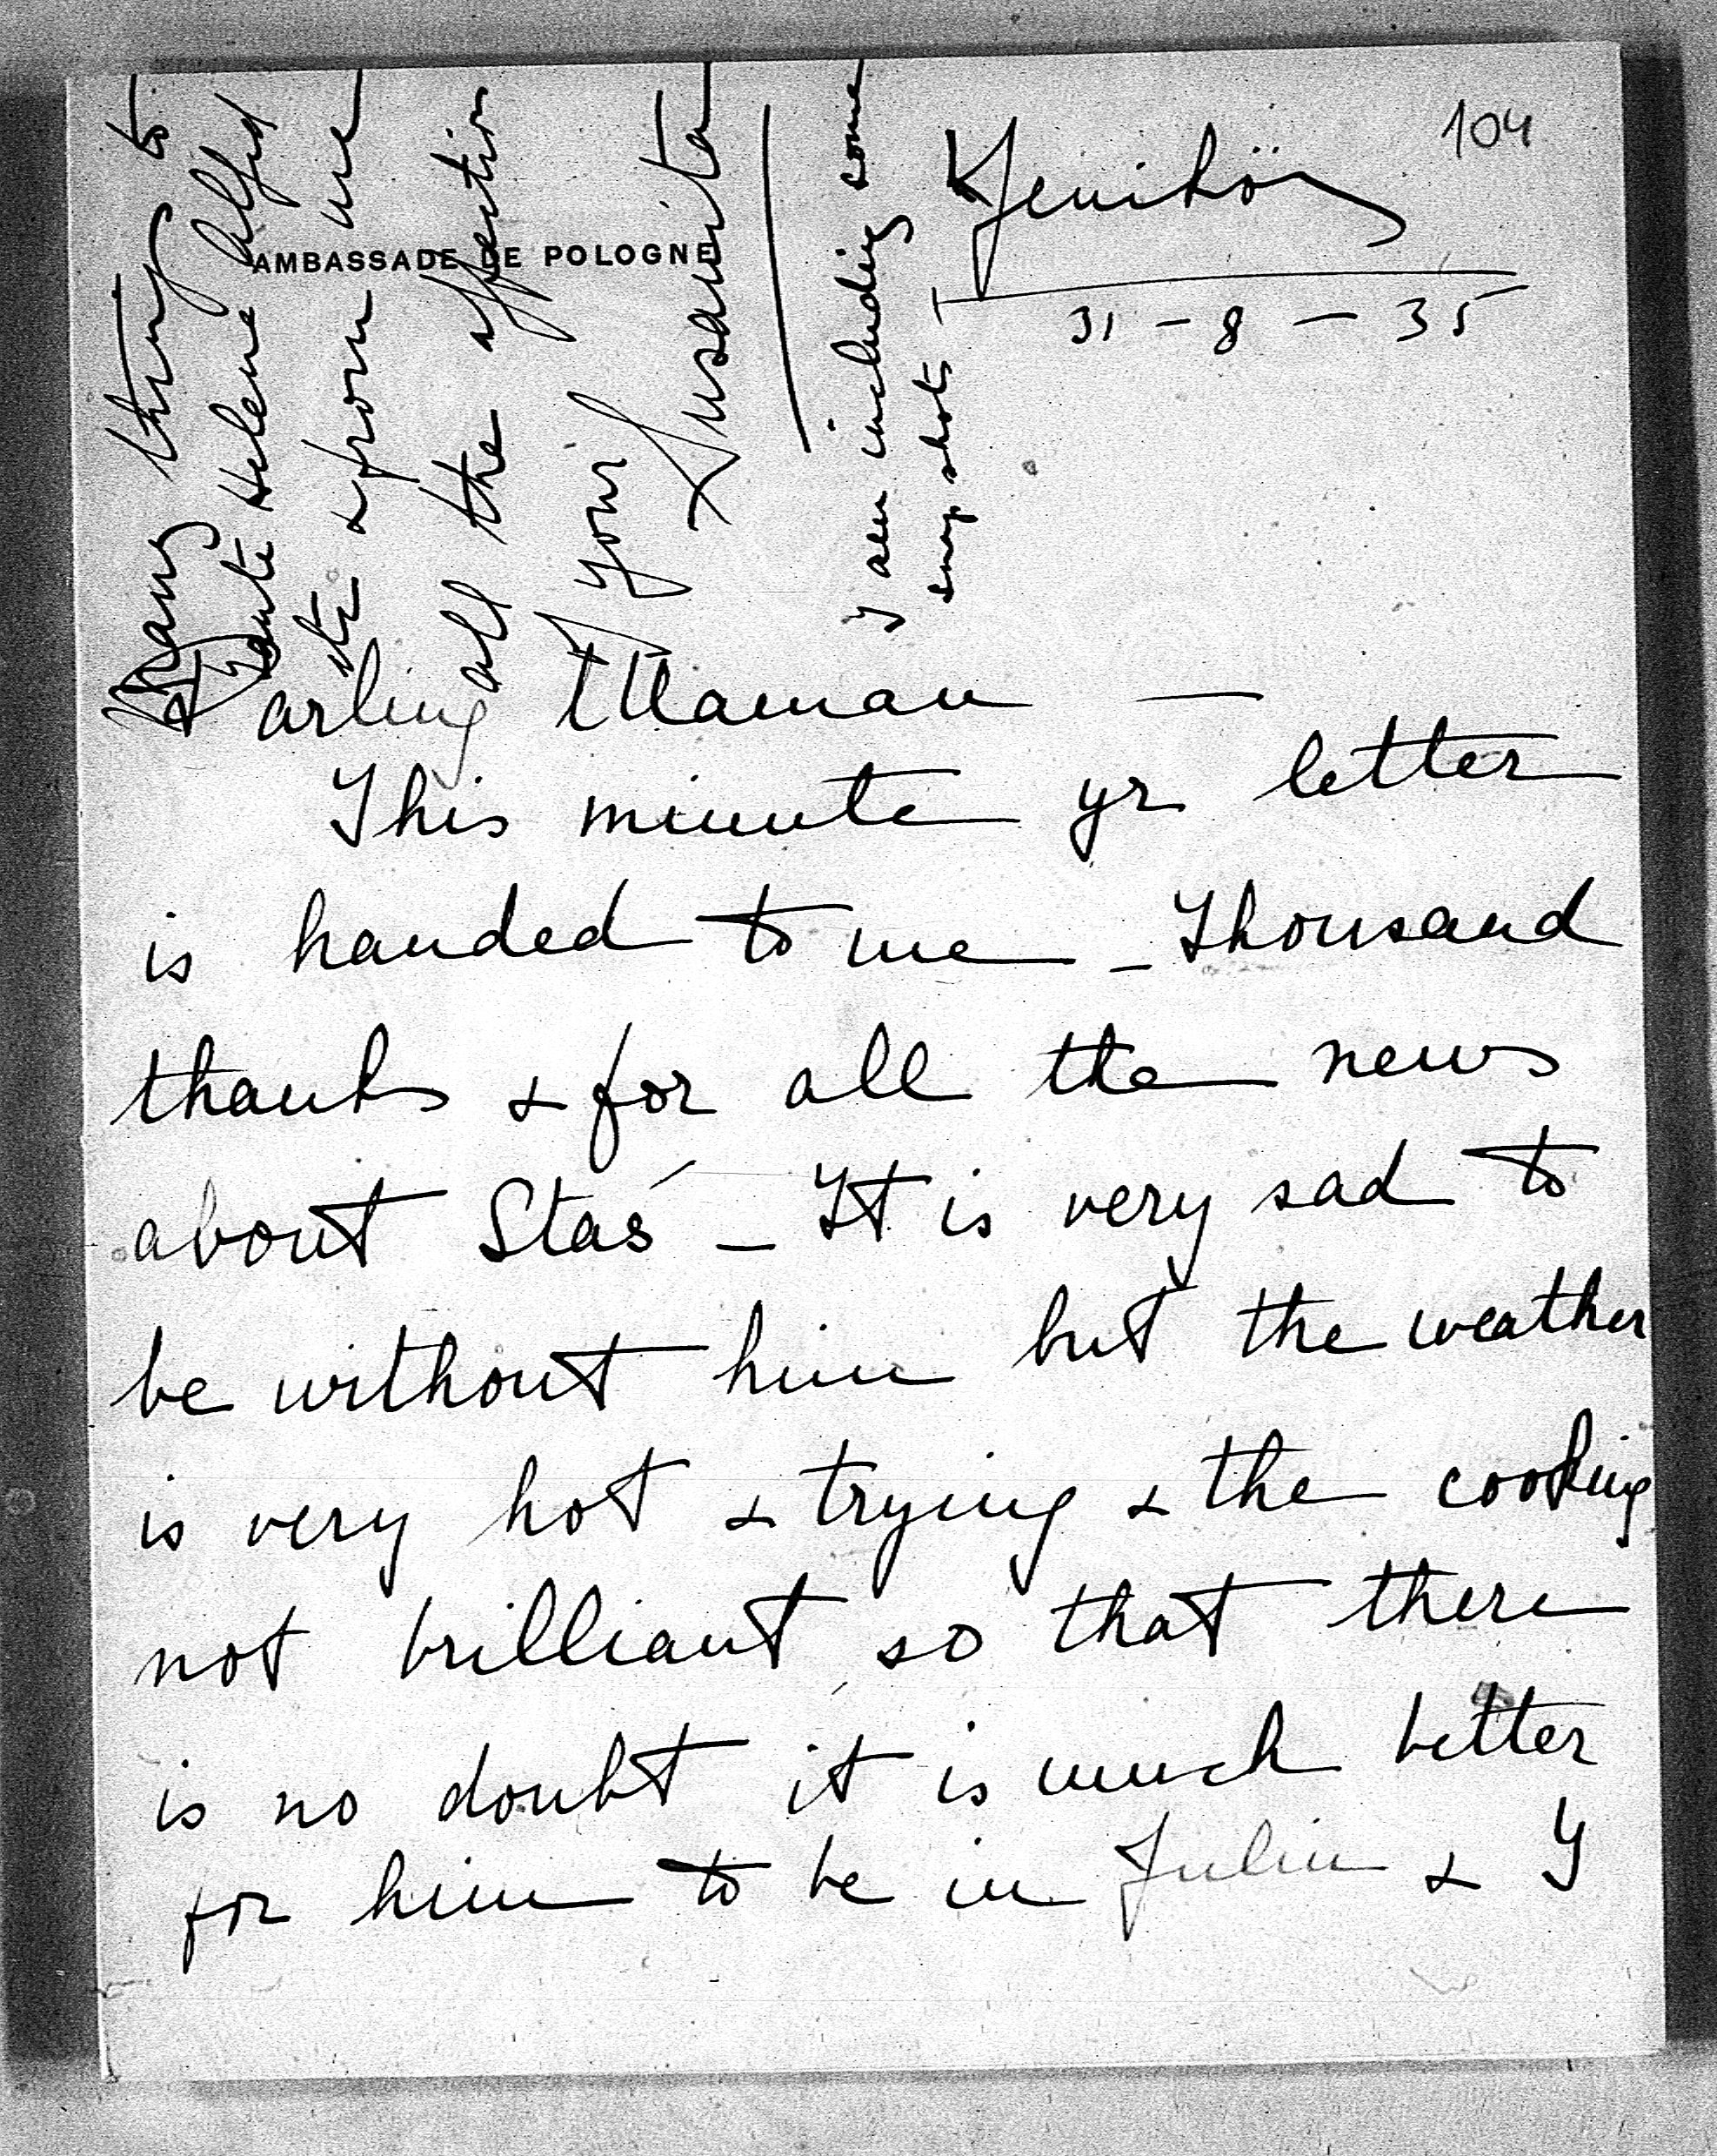 104
AMBASSADE DE POLOGNE
Yeniköy
31 - 8 - 35
Darling Maman —
This minute yr letter
is handed to me - Thousand
thanks & for all the news
about Staś - It is very sad to
be without him but the weather
is very hot & trying & the cooking
not brilliant so that there
is no doubt it is much better
for him to be in Julin & I
Many things to
Tante Helene Alfred
etc & from me
all the affection
of your
Susanita
I am including some
snap shots -